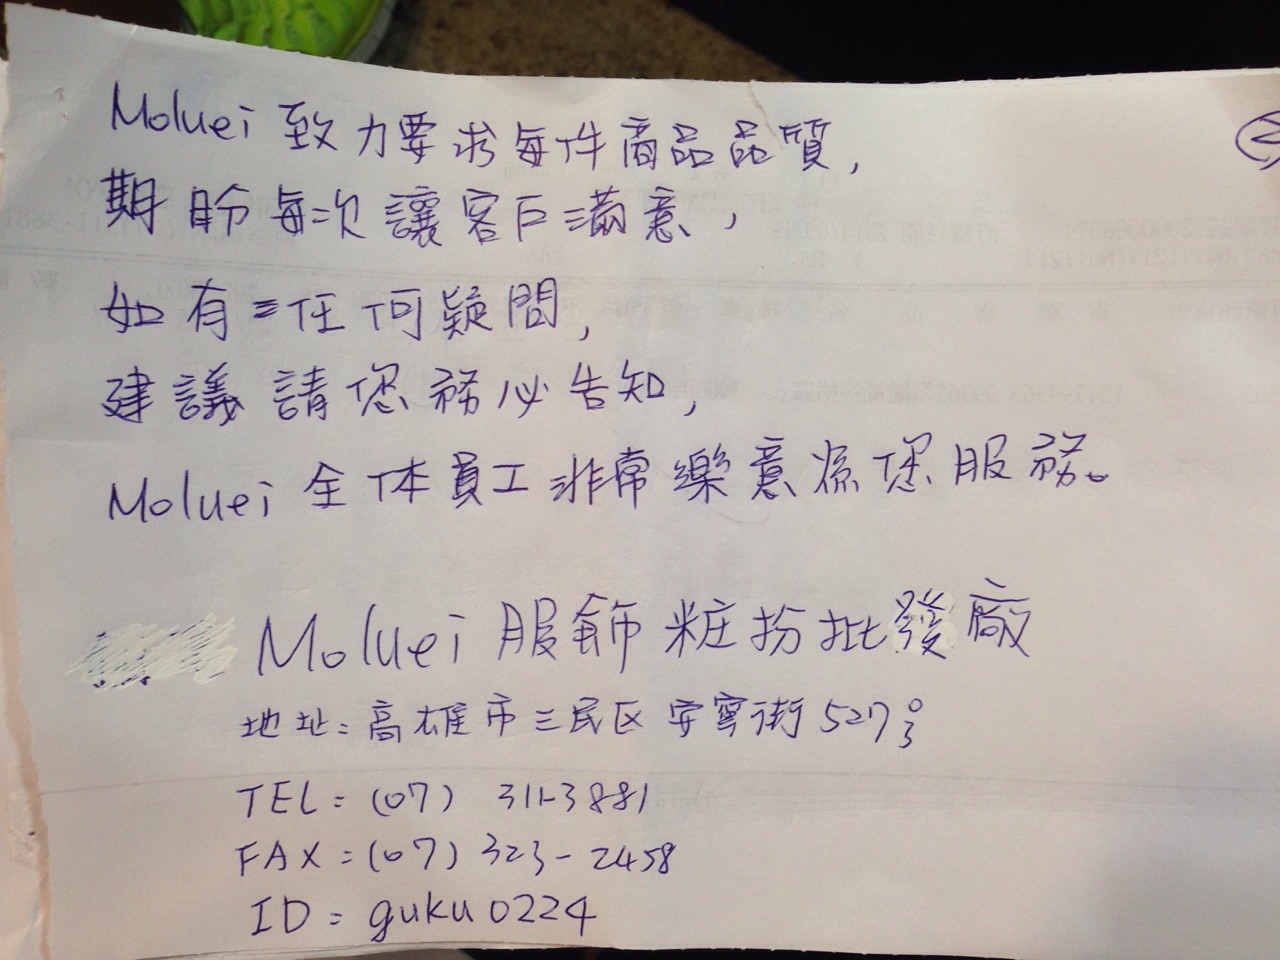 Moluei 致力要求每件商品品質,
期盼每次讓客戶滿意,
如有任何疑問,
建議請您務必告知,
Moluei 全体員工非常樂意為您服務。
Moluei 服飾粧扮批發廠
地址:高雄市三民区安寧街527号
TEL=(07) 311-3881
FAX=(07)323-2458
ID=guku0224